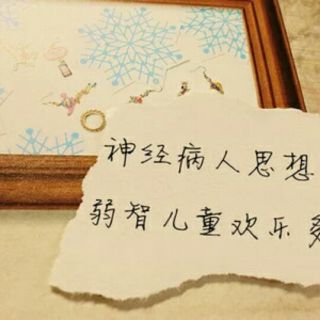 神经病人思想
弱智儿童欢乐